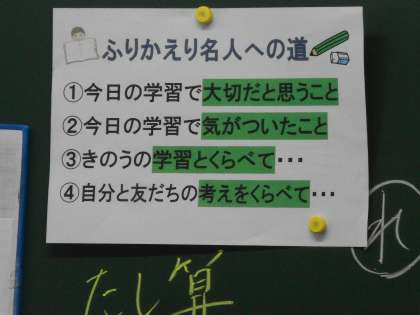 ふりかえり名人への道
①今日の学習で大切だと思うこと
②今日の学習で気がついたこと
③きのうの学習とくらべて…
④自分と友だちの考えをくらべて…
れ
たし算